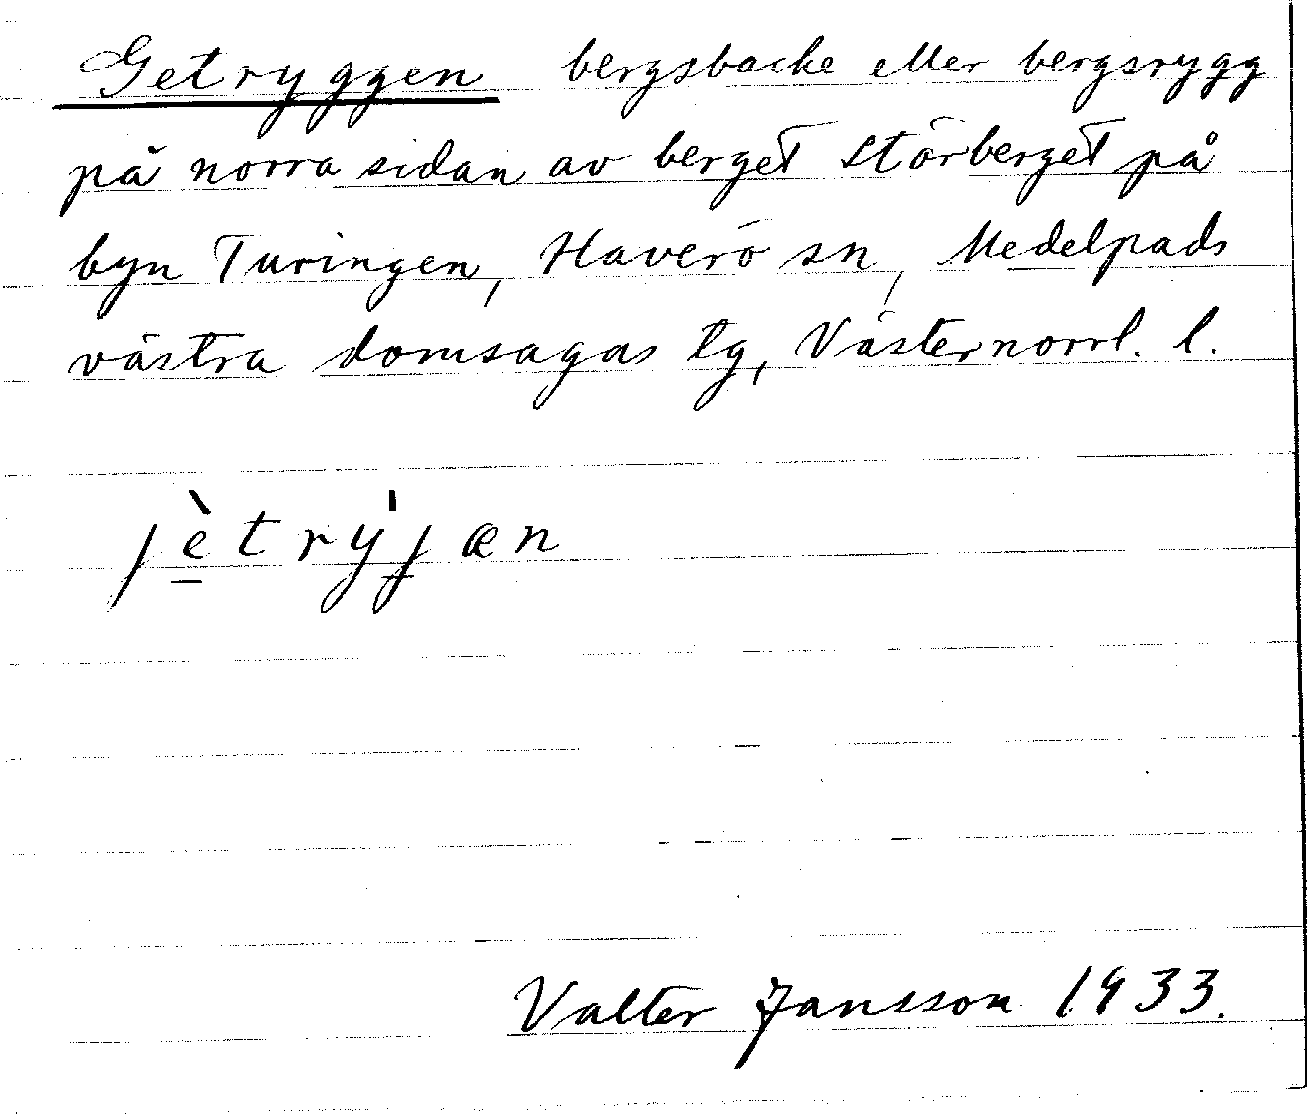 Getryggen bergsbacke eller bergsrygg
på norra sidan av berget Störberget på
byn Turingen, Haverö sn, Medelpads
västra domsagas tg, Västernorrl. l.
jètrýjæn
Valter Jansson 1933.